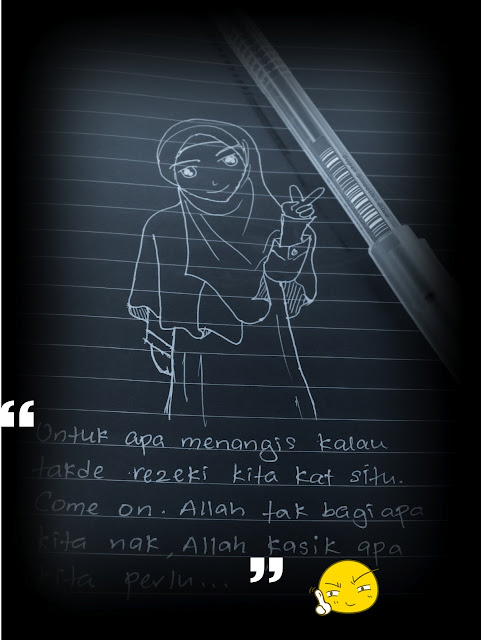 “Untuk apa menangis kalau
takde rezeki kita kat situ.
Come on. Allah tak bagi apa
kita nak, Allah kasik apa
kita perlu...”